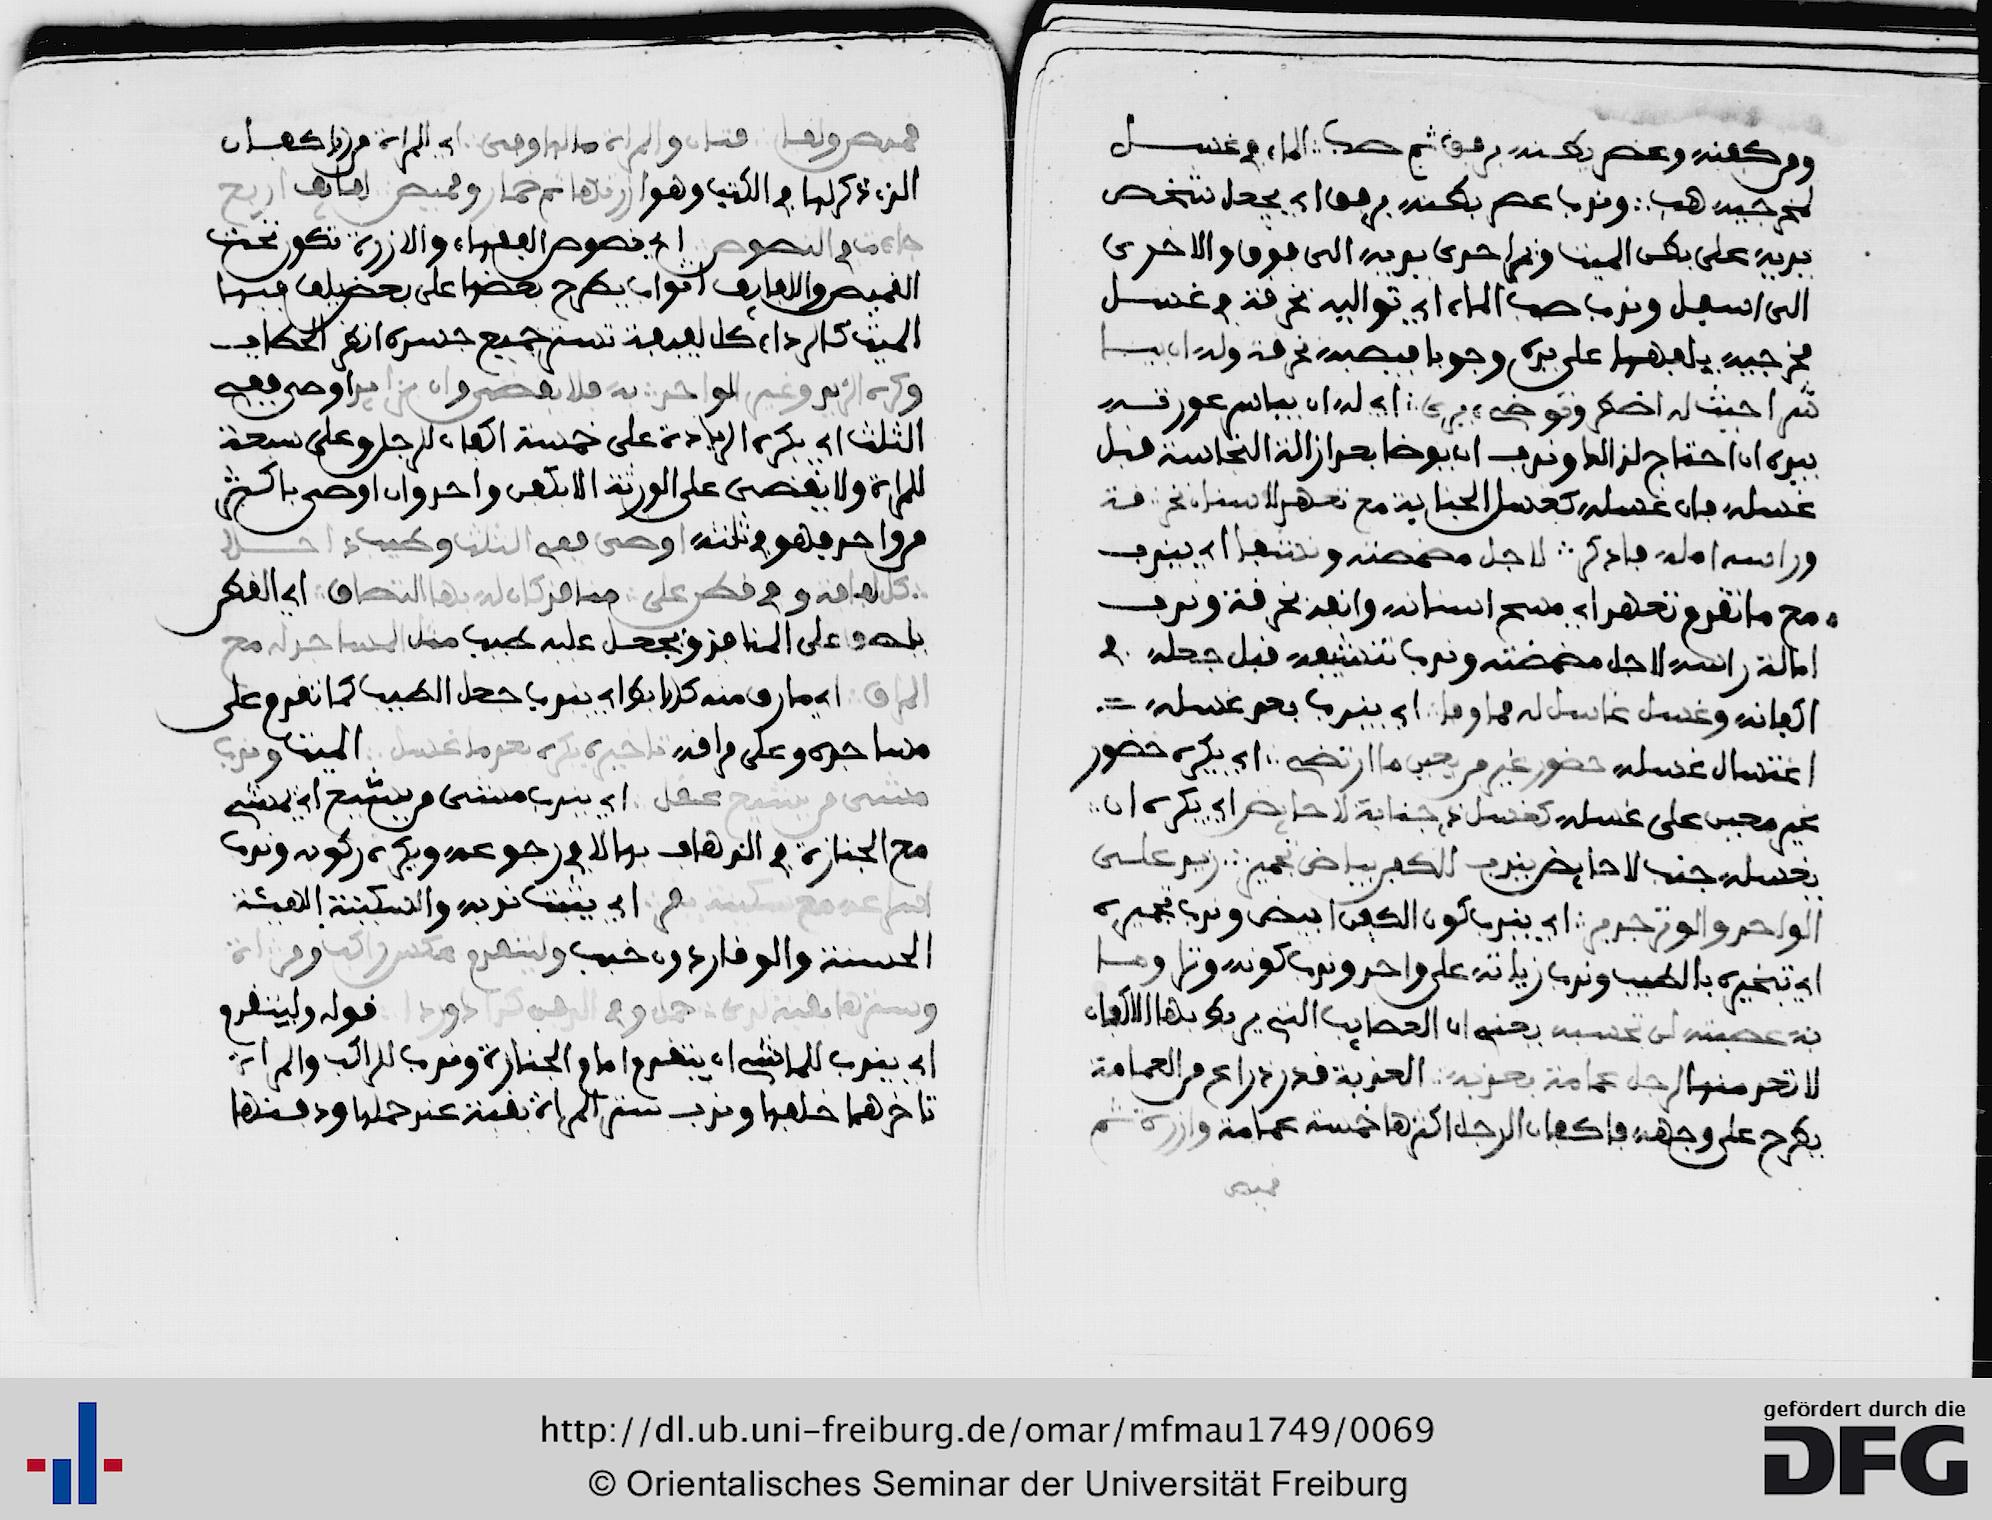 وفي كفنه وعصر بطنه برفق ثم صب الماء في غسل
مخرجيه هب وندب عصر بطنه برفق اي يجعل شخص
يديه على بطن الميت ويرا حدى يديه الى فوق والاخرى
الى اسفل وندب صب الماء اي تواليه بخرقة في غسل
مخرجيه يلفها على يده وجوبا فيصبه بخرقة وله ان
ثم احيث له اضطر وتوضيء يرى اي له ان يباشر عورته
بيده ان احتاج لذالك وندب ان يوضا بعد ازالة النجاسة قبل
غسله بان غسله كغسل الجنابة مع تعهد الاسنان بخرقة
وراسه امله فاذكر لاجل مضمضته وتنشيفا اي يندب
مع ما تقدم تعهد اي مسح اسنانه وانفه بخرقة وندب
امالة راسه لاجل مضمضته وندب تنشيفه قبل جعله في
اكفانه وغسل غاسل له مما وفا اي يندب بعد غسله
اغتسال غسله حضور غير من يعين ما ارتضي اي يكره حضور
غير معين على غسله كغسل ذي جنابة لا حايض اي يكره ان
يغسله جنب لا حايض يندب الكفن بياض تجمير زيد على
الواحد والوتر جرم اي يندب كون الكفن ابيض وندب تجميره
اي تبخيره بالطيب وندب زيادته على واحد وندب كونه وترا وما
به عصبته لن تحسبه يعني ان العصايب التي يربط بها الاكفان
لا تعد منها لرجل عمامة بعذبة العذبة قدر ذراع من العمامة
يطرح على وجهه فاكفان الرجل اكثرها خمسة عمامة وازرة ثم
قميص
قميص ولفا فتان والمراة اي المراة من زيا كفان
الذي ذكر لها في الكتب وهوا ازرتها ثم خمار وقميص لفايف اربع
جاءت في النصوص اي نصوص الفقهاء والازرة تكون تحت
القميص واللفايف اثواب يطرح بعضها على بعض يلف فيها
الميت كالرداء كل لفيفة تستر جميع جسده انظر الحطاب
وكره الزيد وغير الواحد به فلا يقضى وان يزايد اوصى ففي
الثلث اي يكره الزيادة على خمسة اكفان للرجل وعلى سبعة
للمراة ولا يقضى على الورثة الا بكفن واحد وان اوصى باكثر
من واحد فهو في ثلثه اوصى ففي الثلث وطيب داخل
كل لفافة وفي قطن على منافذ كان له بها التصاق اي القطن
يلصق على المنافذ ويجعل عليه طيب مثل المساجد له مع
المراق اي مارق منه كذا بط اي يندب جعل الطيب كما تقدم على
مساجده وعلى مراقه تاخيره يكره بعد ما غسل الميت وندب
مشي من يشيع عقل اي يندب مشى من يشيع اي يمشي
مع الجنازة في الذهاب بها لا في رجوعه ويكره ركوبه وندب
اسراعه مع سكينة اي يندب تثبت نوبه والسكينة الهيئة
الحسنة والوقار دون خبب وليتقدم عكس راكب ومراة
وسترها بقبة لدى حمل وفي الدفن كذا دودا قوله وليتقدم
اي يندب للماشي ان يتقدم امام الجنازة وندب للراكب والمراة
تاخرهما خلفها وندب ستر المراة بقبة عند حملها ودفنها
http://dl.ub.uni-freiburg.de/omar/mfmau1749/0069
© Orientalisches Seminar der Universität Freiburg
gefördert durch die
DFG